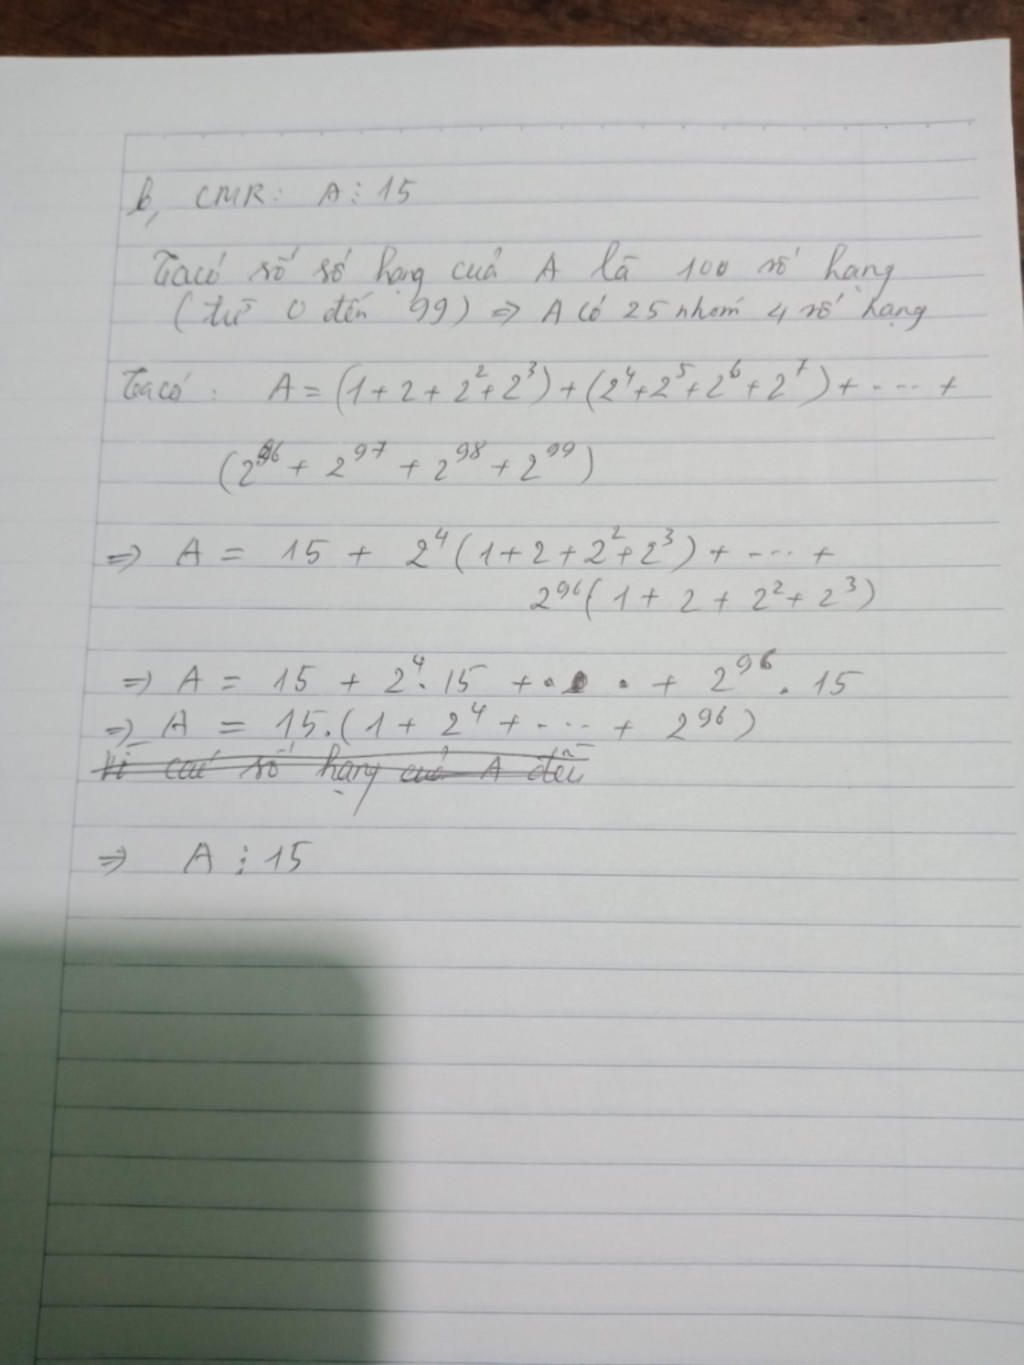 b, CMR: A ⋮ 15
Ta có số số hạng của A là 100 số hạng
(từ 0 đến 99) => A có 25 nhóm 4 số hạng
Ta có: A = (1 + 2 + 2² + 2³) + (2⁴ + 2⁵ + 2⁶ + 2⁷) + .... +
(2⁹⁶ + 2⁹⁷ + 2⁹⁸ + 2⁹⁹)
=> A = 15 + 2⁴(1 + 2 + 2² + 2³) + .... +
2⁹⁶(1 + 2 + 2² + 2³)
=> A = 15 + 2⁴.15 + ... + 2⁹⁶.15
=> A = 15.(1 + 2⁴ + .... + 2⁹⁶)
Vì các số hạng của A đều
=> A ⋮ 15